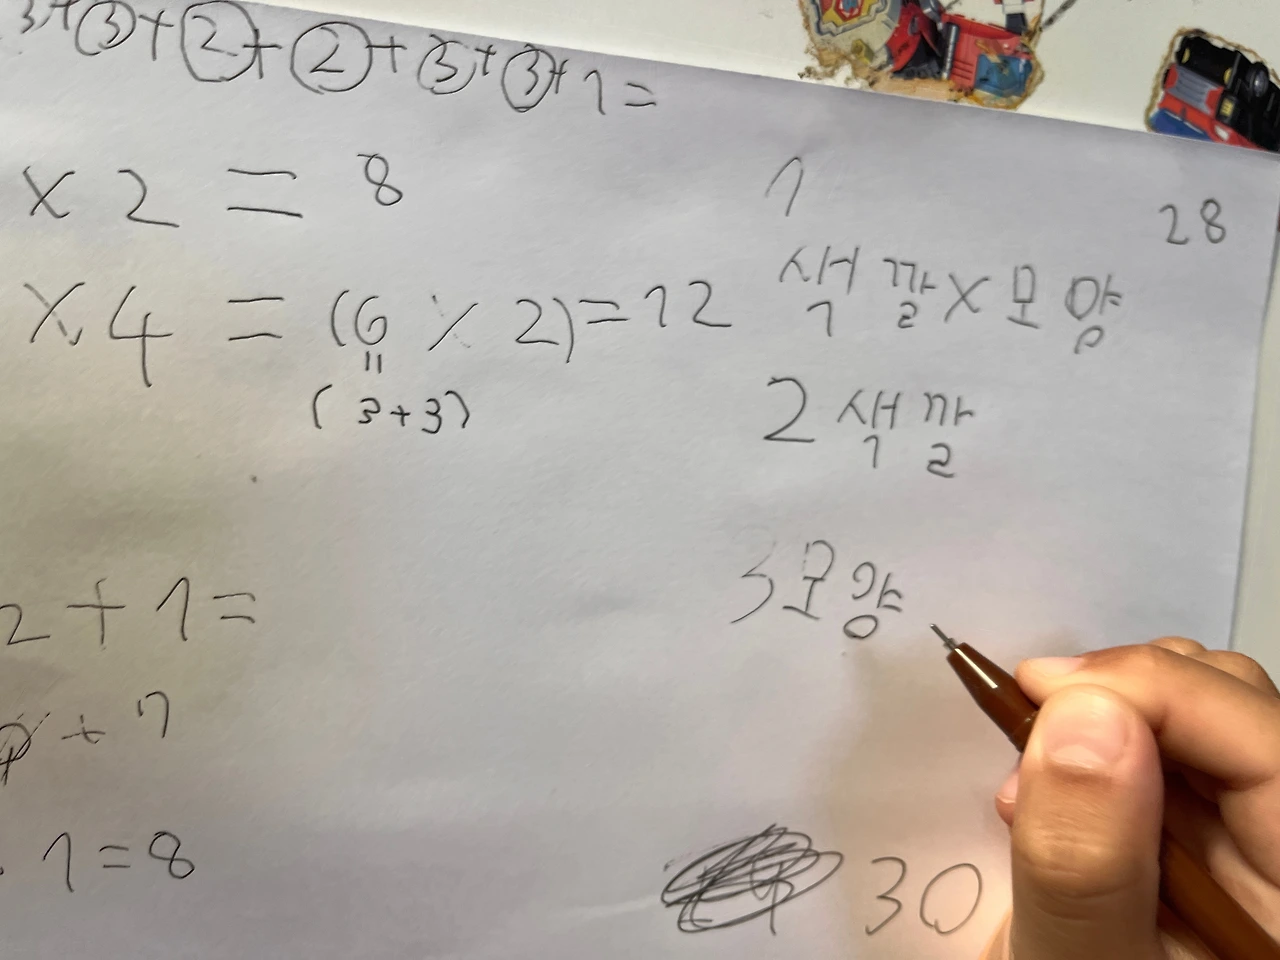 3+3+2+2+3+3+1=
x 2 = 8
1
28
x 4 = (6 x 2)=12
색깔x모양
"
(3+3)
2 색깔
3모양
2+1=
+7
1=8
30